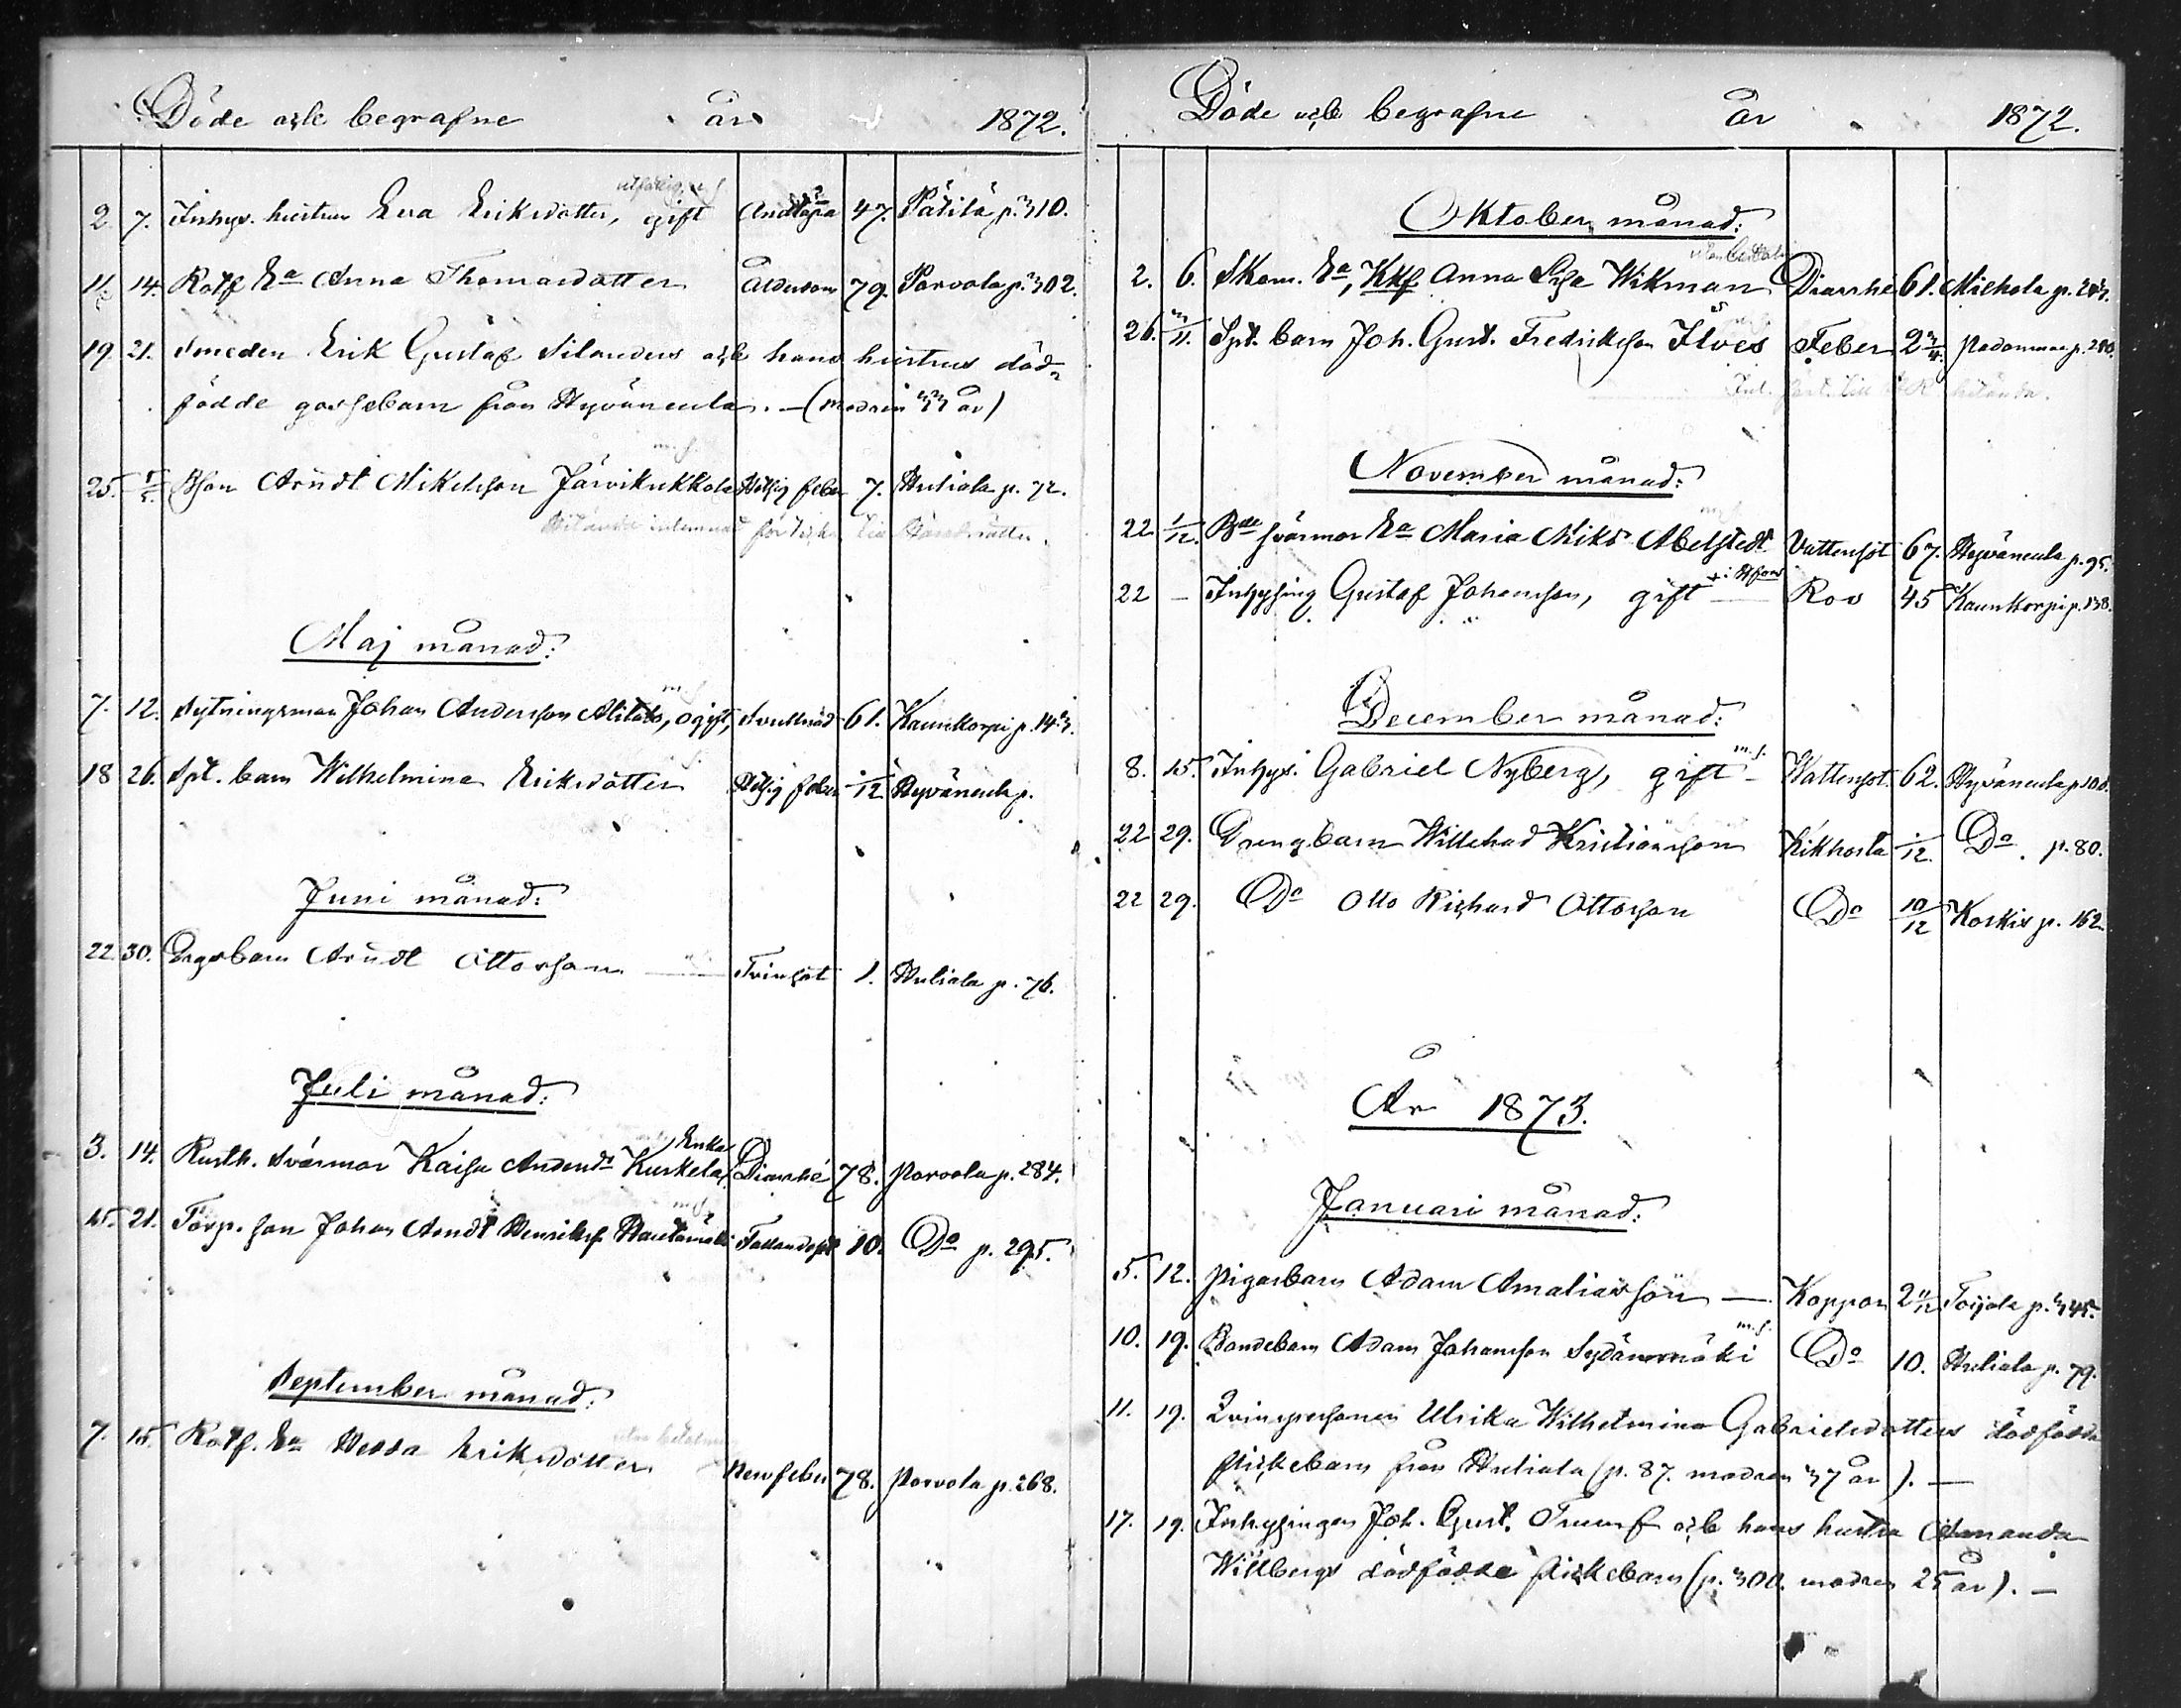 Döde och begrafne år 1872.
2. 7. Inhys. hustrun Eva Eriksdotter, gift Andtäpa 47. Pätilä p. 310.
11. 14. Rotf. Ea Anna Thomasdotter Ålderdom 79. Porvola p. 302.
19. 21. Smeden Erik Gustaf Silanders och hans hustrus död-
födde gossebarn från Hyväneula. — (modren 33 år)
m. f.
25. 1/5. Bson Arndt Mikelsson Järvikukkola Hetsig feber 7. Huliala p. 72.
Maj månad:
7. 12. Sytningsman Johan Andersson Alitalo, ogift, 61. Kaunkorpi p. 143.
18 26. Spt. barn Wilhelmina Eriksdotter Hetsig feber 1/12 Hyväneula p.
Juni månad:
22. 30. Drgs barn Arndt Ottosson Trinsot 1. Huliala p. 76.
Juli månad:
Enka
3. 14. Rusth. svärmor Kaisa Andersdr Kurkela Diarrhé 78. Porvola p. 284.
m. f.
15. 21. Torp. son Johan Arndt Henriksf Hautamäki Fallandesot 10. Do p. 295.
September månad:
7. 15. Rotf. Ea Hedda Eriksdotter Nervfeber 78. Porvola p. 268.
Döde och begrafne år 1872.
Oktober månad:
2. 6. Skom. Ea, Kkf Anna Lisa Wikman Diarrhé 61. Michola p. 243.
26. 3/11. Spt. barn Joh. Gust. Fredriksson Ilves Feber 2 3/4. Padanmaa p. 280.
November månad:
22 1/12. Bde svärmor Ea Maria Miksdr Abelstedt Vattensot 67. Hyväneula p. 95.
22 — Inhysing Gustaf Johansson, gift Ros 45 Kaunkorpi p. 138.
December månad:
m. f.
8. 15. Inhys. Gabriel Nyberg, gift — Wattensot. 62. Hyväneula p. 100.
22 29. Drengbarn Willehad Kristiansson Kikhosta 1/12. Do. p. 80.
22 29. Do Otto Richard Ottosson Do 10/12 Koskis p. 162.
År 1873.
Januari månad:
5. 12. Pigasbarn Adam Amaliasson — Koppor 2 11/12 Toijola p. 345.
m. f.
10. 19. Bondebarn Adam Johansson Sydänmäki Do 10. Huliala p. 79.
11. 19. Qvinspersonen Ulrika Wilhelmina Gabrielsdotters dödfödda
flickebarn från Huliala (p. 87. modren 37 år). —
17. 19. Inhysingen Joh. Gust. Trumf och hans hustru Amanda
Willbergs dödfödda flickebarn (p. 300. modren 25 år). —